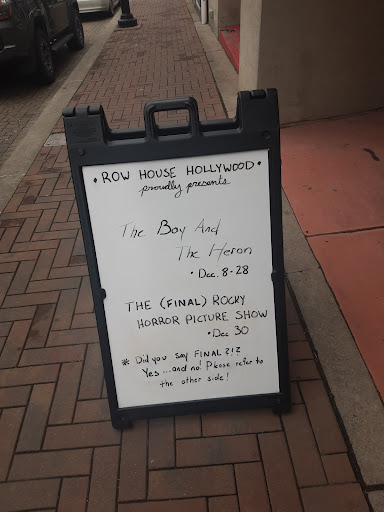 • ROW HOUSE HOLLYWOOD •
proudly presents
The Boy And
The Heron
• Dec. 8-28
THE (FINAL) ROCKY
HORROR PICTURE SHOW
• Dec 30
* Did you say FINAL ?!?
Yes ...and no! Please refer to
the other side!